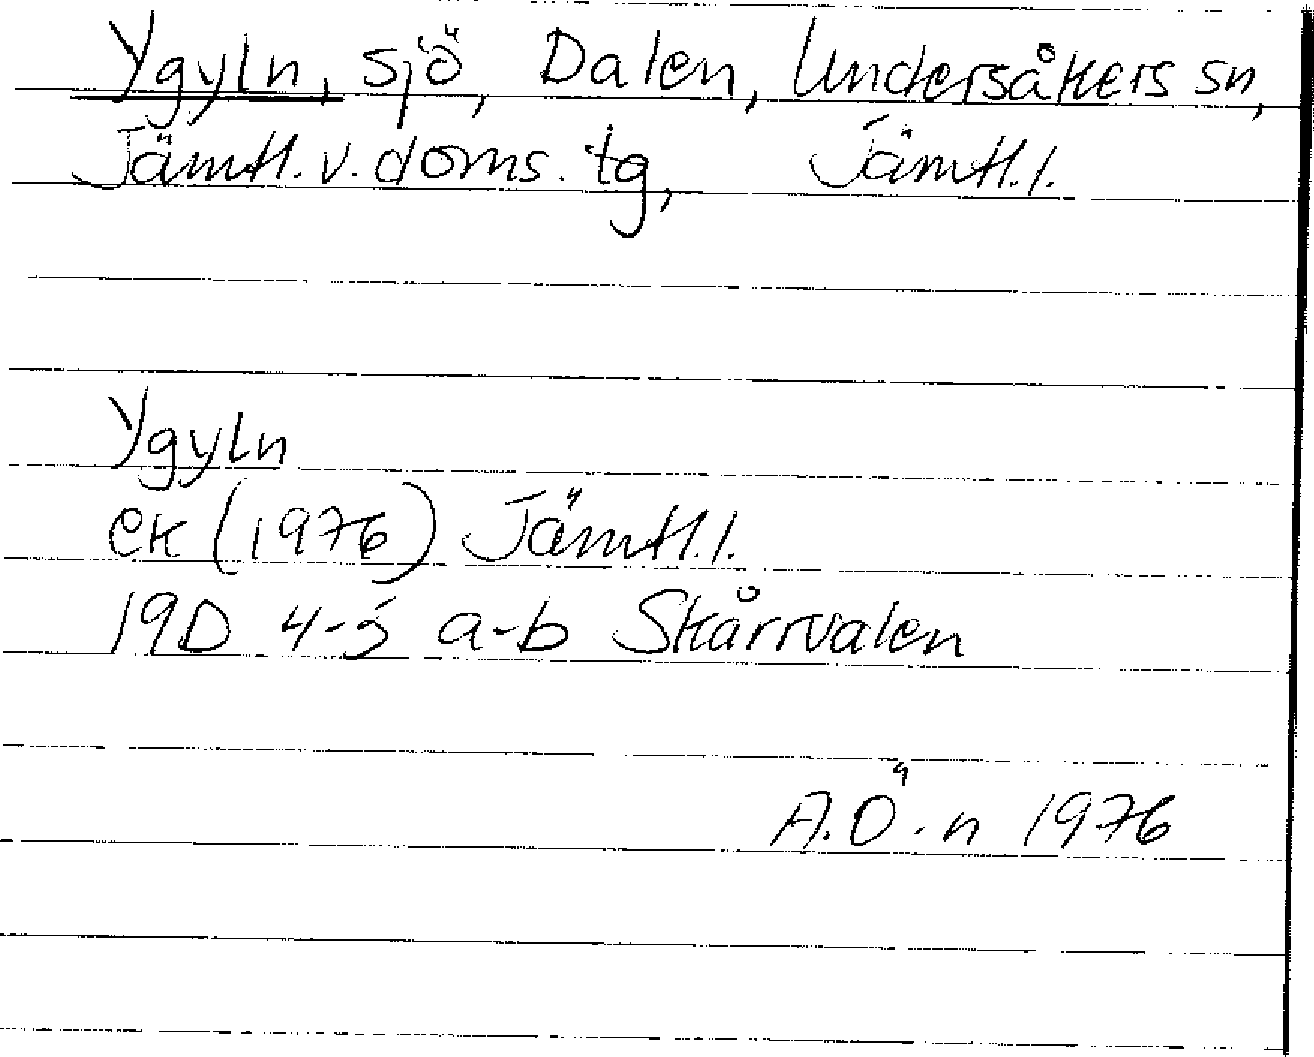 Ygyln, sjö, Dalen, Undersåkers sn,
Jämtl. v. doms. tg, Jämtl. l.
Ygyln
ek (1976) Jämtl. l.
19D 4-5 a-b Skårvalen
A.Ö-n 1976